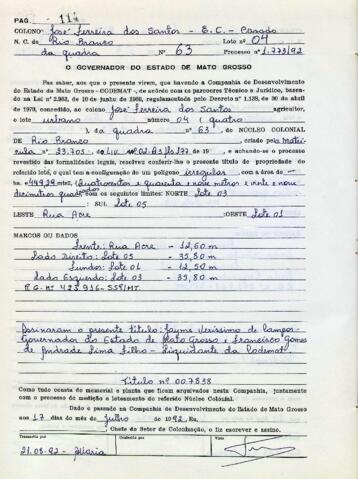 PAG. 114
COLONO José Ferreira dos Santos - E.C. - Casado
N. C. de Rio Branco Lote nº 04
da quadra Nº 63 Processo nº 1.273/92
O GOVERNADOR DO ESTADO DE MATO GROSSO
Faz saber, aos que o presente virem, que havendo a Companhia de Desenvolvimento
do Estado de Mato Grosso - CODEMAT -, de acordo com os pareceres Técnico e Jurídico, basea-
da na Lei nº 2.903, de 10 de junho de 1968, regulamentada pelo Decreto nº 1.138, de 30 de abril
de 1970, concedido, ao colono José Ferreira dos Santos agricultor, o
lote urbano número 04 (quatro
) da quadra nº 63, do NÚCLEO COLONIAL
DE Rio Branco criado pela Matrí-
cula nº 23.705 do Liv. nº 02 fls 177 de 19 , e achando-se o processo
revestido das formalidades legais, resolveu conferir-lhe o presente título de propriedade do
referido lote, o qual tem a configuração de um polígono irregular com a área de
449,29 mts2, (Quatrocentos e quarenta e nove metros e vinte e nove
decímetros quadrados com os seguintes limites: NORTE Lote 03
: SUL Lote 05
LESTE Rua Acre :OESTE Lote 01
MARCOS OU DADOS
Frente: Rua Acre - 12,60 m
Lado Direito: Lote 05 - 35,80 m
Fundos: Lote 01 - 12,50 m
Lado Esquerdo: Lote 03 - 35,80 m
R.G. nº 423.936-SSP/MT.
Assinaram o presente título: Jayme Veríssimo de Campos -
Governador do Estado de Mato Grosso e Francisco Gomes
de Andrade Lima Filho - Liquidante da Codemat.
Título nº 007538
Como tudo consta do memorial e planta que ficam arquivados nesta Companhia, juntamente
com o processo de medição e loteamento do referido Núcleo Colonial.
Dado e passado na Companhia de Desenvolvimento do Estado de Mato Grosso
aos 17 dias do mês de Julho de 1992, Eu,
, Chefe do Setor de Colonização, o fiz escrever e assino.
Transcrito por Conferido por Visto
21.09.92 - Maria